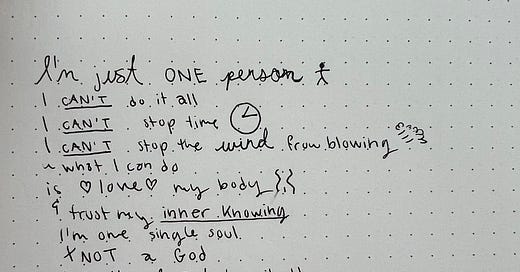 I'm just ONE person
I CAN'T do it all
I CAN'T stop time
I CAN'T stop the wind from blowing
~ what I can do
is ♡ love ♡ my body
& trust my inner knowing
I'm one single soul
NOT a God